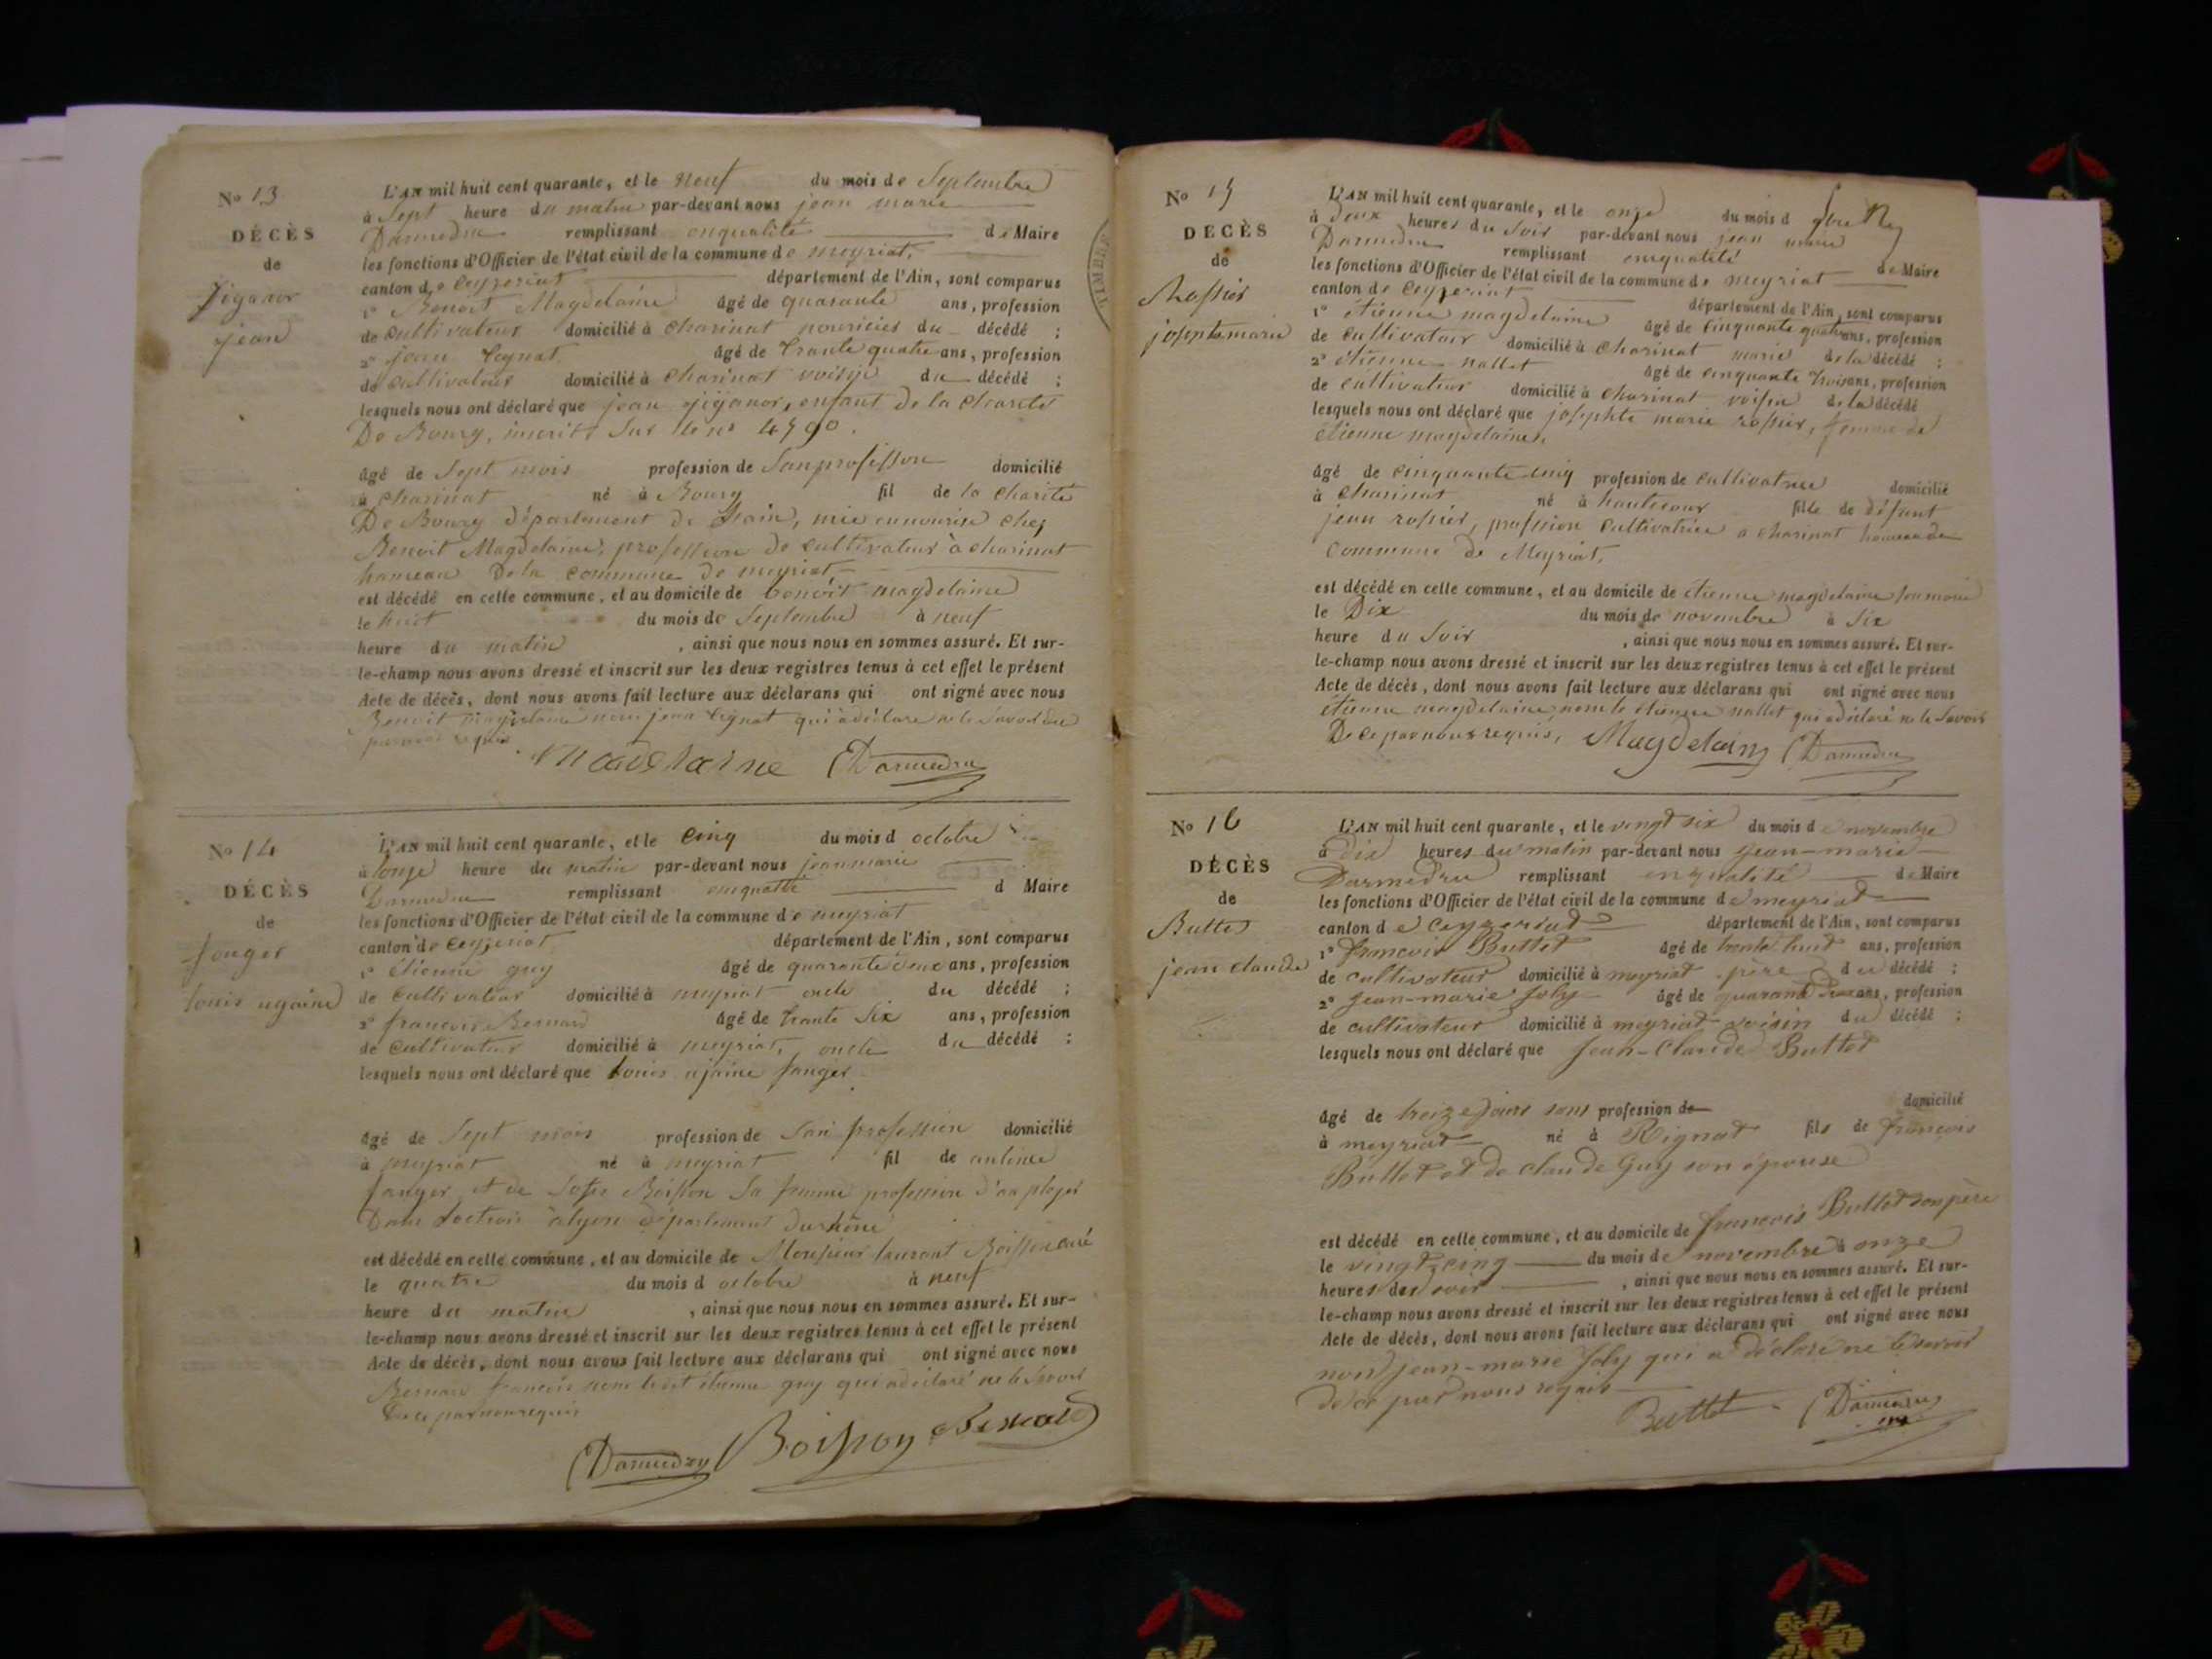 No 13
DÉCÈS
de
jiganor
jean
L'AN mil huit cent quarante, et le neuf du mois de Septembre
à Sept heure du matin par-devant nous jean marie
Darmedru remplissant enqualité de Maire
les fonctions d'Officier de l'état civil de la commune de meyriat,
canton de Ceyzeriat département de l'Ain, sont comparus
1º Benoit Magdelaine âgé de quarante ans, profession
de Cultivateur domicilié à Charinat nouricier du décédé ;
2º jean Cognat âgé de trante quatre ans, profession
de Cultivateur domicilié à Charinat voisin du décédé ;
lesquels nous ont déclaré que jean jiganor, enfant de la Charité
De Bourg, inscrit Sur le no 4790.
âgé de Sept mois profession de San profession domicilié
à Charinat né à Bourg fil de la Charité
De Bourg département de l'ain, mie ennourise chez
Benoit Magdelaine, profession de Cultivateur à Charinat
hameau De la Commune de meyriat
est décédé en celle commune, et au domicile de benoit magdelaine
le huit du mois de Septembre à neuf
heure du matin , ainsi que nous nous en sommes assuré. Et sur-
le-champ nous avons dressé et inscrit sur les deux registres tenus à cet effet le présent
Acte de décès, dont nous avons fait lecture aux déclarans qui ont signé avec nous
Benoit magdelaine non jean Cognat qui a déclaré ne le Savoir de ce
par nous requis
Madelaine Darmedru
No 14
DÉCÈS
de
fanger
Louis ugaine
L'AN mil huit cent quarante, et le Cinq du mois d octobre
à onze heure du matin par-devant nous jean marie
Darmedru remplissant enqualité d Maire
les fonctions d'Officier de l'état civil de la commune de meyriat
canton de Ceyzeriat département de l'Ain, sont comparus
1º étienne guy âgé de quarante deux ans, profession
de Cultivateur domicilié à meyriat oncle du décédé ;
2º francois Bernard âgé de trante Six ans, profession
de Cultivateur domicilié à meyriat, oncle du décédé ;
lesquels nous ont déclaré que Louis ujaine fanger
âgé de Sept mois profession de San profession domicilié
à meyriat né à meyriat fil de antoine
fanger et de Sofie Boisson Sa femme profession d'anployer
Dans loctroie à lyon département du rhône
est décédé en celle commune, et au domicile de Monsieur laurant Boisson curé
le quatre du mois d octobre à neuf
heure du matin , ainsi que nous nous en sommes assuré. Et sur-
le-champ nous avons dressé et inscrit sur les deux registres tenus à cet effet le présent
Acte de décès, dont nous avons fait lecture aux déclarans qui ont signé avec nous
Bernard francois étienne guy qui a déclaré ne le Savoir
De ce par nous requis
Darmedru Boisson Bernard
No 15
DÉCÈS
de
Rossier
josephte marie
L'AN mil huit cent quarante, et le onze du mois d 9bre
à Deux heures du Soir par-devant nous jean marie
Darmedru remplissant enqualité de Maire
les fonctions d'Officier de l'état civil de la commune de meyriat
canton de Ceyzeriat département de l'Ain, sont comparus
1º étienne magdelaine âgé de Cinquante quatre ans, profession
de Cultivateur domicilié à Charinat marie de la décédé ;
2º étienne nallet âgé de cinquante trois ans, profession
de Cultivateur domicilié à Charinat voisin de la décédé
lesquels nous ont déclaré que josephte marie rossier, femme de
étienne magdelaine,
âgé de cinquante cinq profession de Cultivatrice domicilié
à Charinat né à hautecour fille de défunt
jean rossier, profession Cultivatrice a Charinat hameau de
Commune de Meyriat,
est décédé en celle commune, et au domicile de étienne magdelaine Son marie
le Dix du mois de novembre à Six
heure du Soir , ainsi que nous nous en sommes assuré. Et sur-
le-champ nous avons dressé et inscrit sur les deux registres tenus à cet effet le présent
Acte de décès, dont nous avons fait lecture aux déclarans qui ont signé avec nous
étienne magdelaine, étienne nallet qui a déclaré ne le Savoir
De ce par nous requis, Magdelaine Darmedru
No 16
DÉCÈS
de
Buttet
jean claude
L'AN mil huit cent quarante, et le vingt six du mois de novembre
à dix heures du matin par-devant nous jean-marie
Darmedru remplissant enqualité de Maire
les fonctions d'Officier de l'état civil de la commune de meyriat
canton de Ceyzeriat département de l'Ain, sont comparus
1º francois Buttet âgé de trente huit ans, profession
de cultivateur domicilié à meyriat père du décédé ;
2º jean-marie joly âgé de quarante deux ans, profession
de cultivateur domicilié à meyriat voisin du décédé ;
lesquels nous ont déclaré que jean-claude Buttet
âgé de treize jours sans profession de domicilié
à meyriat né à Rignat fils de francois
Buttet et de claude Guy son épouse
est décédé en celle commune, et au domicile de francois Buttet son père
le vingt cinq du mois de novembre à onze
heures du soir , ainsi que nous nous en sommes assuré. Et sur-
le-champ nous avons dressé et inscrit sur les deux registres tenus à cet effet le présent
Acte de décès, dont nous avons fait lecture aux déclarans qui ont signé avec nous
non jean-marie joly qui a déclaré ne le savoir
de ce par nous requis
Buttet Darmedru